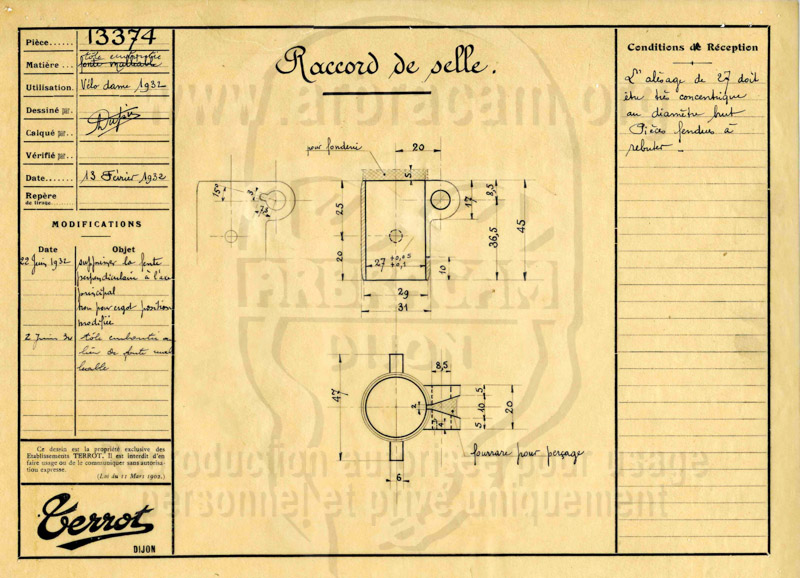 Pièce...... 13374
tôle emboutie
Matière ... fonte malléable
Utilisation. Vélo dame 1932
Dessiné par.
Calqué par..
Vérifié par..
Date....... 13 Février 1932
Repère
de tirage
MODIFICATIONS
Date Objet
22 Juin 1932 supprimer la fente
perpendiculaire à l'axe
principal
trou pour ergot position
modifiée
2 Juin 34 tôle emboutie au
lieu de fonte mal
léable
Ce dessin est la propriété exclusive des
Etablissements TERROT. Il est interdit d'en
faire usage ou de le communiquer sans autorisa-
tion expresse.
(Loi du 11 Mars 1902.)
Terrot
DIJON
Raccord de selle.
pour fonderie
20
5
15°
3
7,5
25
20
17
8,5
36,5
45
27 +0,05
+0,1
10
29
31
47
8,5
2
5
10
5
20
3
4
6
fourrure pour perçage
Conditions de Réception
L'alésage de 27 doit
être très concentrique
au diamètre brut
Pièces fendues à
rebuter
ARBRACAM
DIJON
Reproduction autorisée pour usage
personnel et privé uniquement